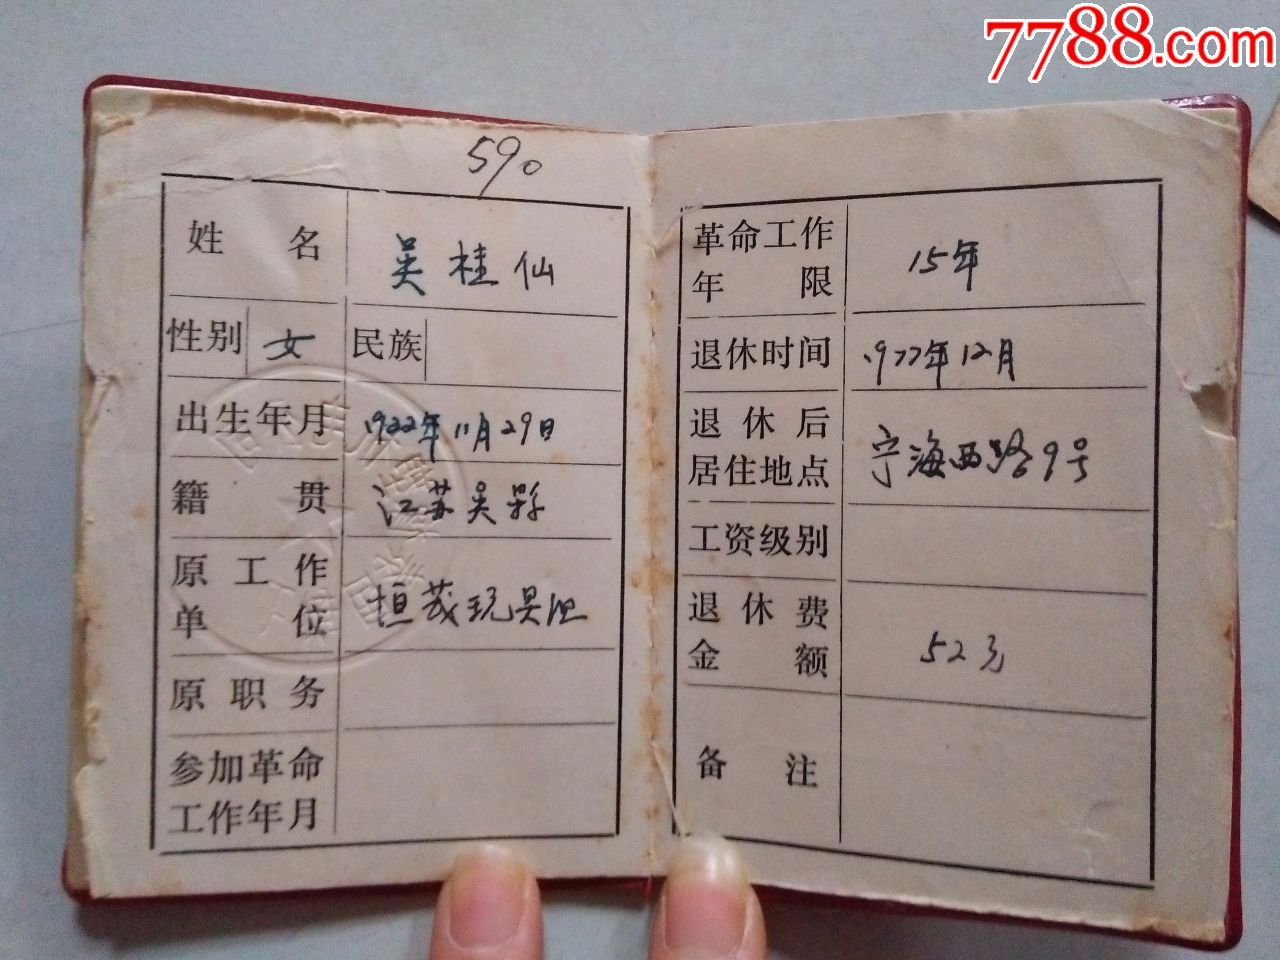 7788.com
590
姓名 吴桂仙
性别 女 民族
出生年月 1922年11月29日
籍贯 江苏吴县
原工作
单位 恒茂玩具组
原职务
参加革命
工作年月
革命工作
年限 15年
退休时间 1977年12月
退休后
居住地点 宁海西路9号
工资级别
退休费
金额 52元
备注